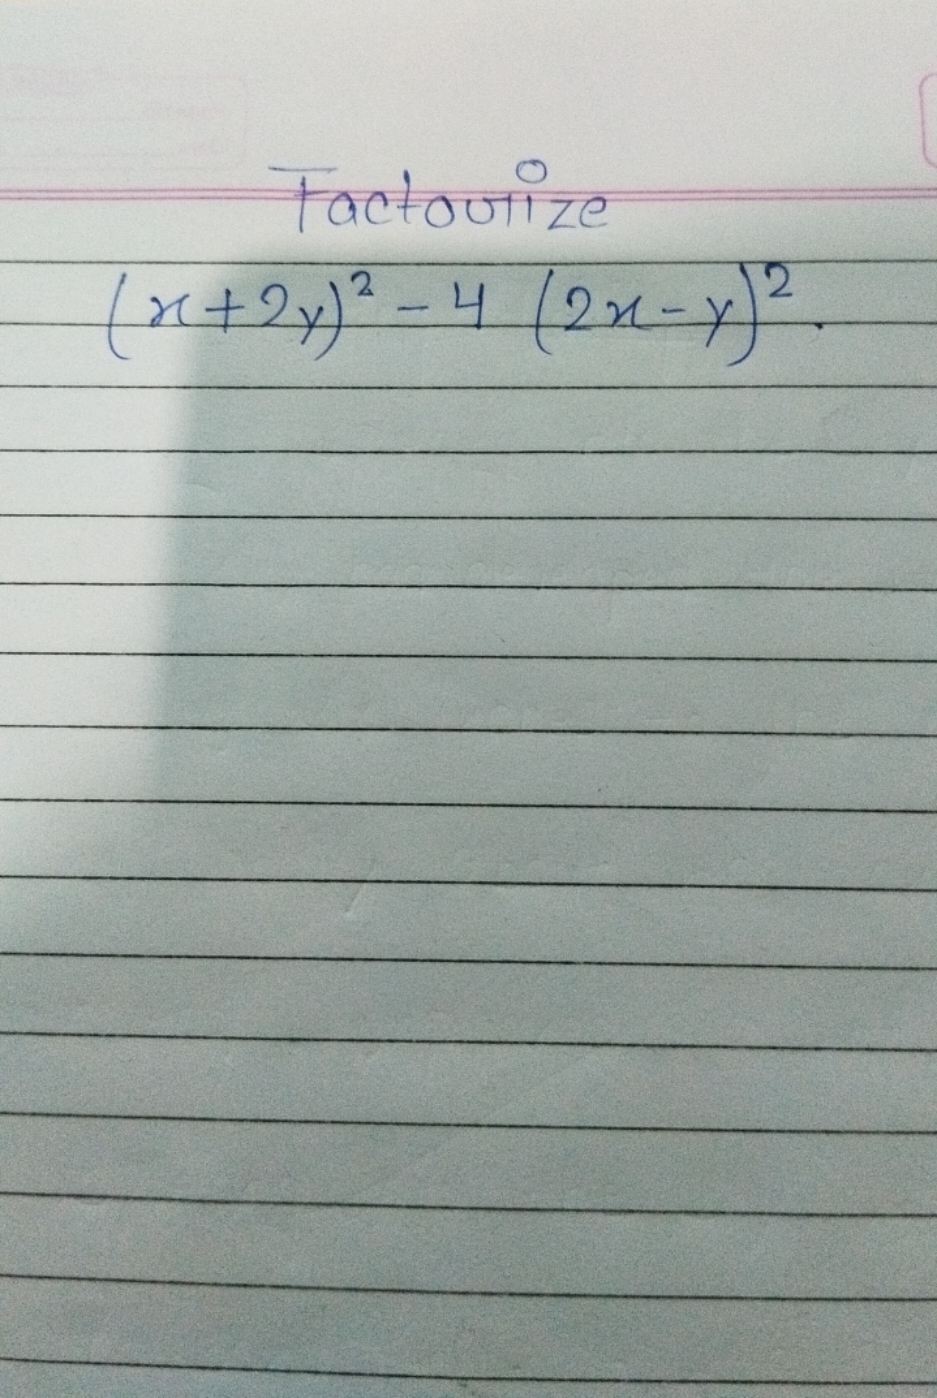 Factorize
(x+2y)² - 4 (2x-y)².